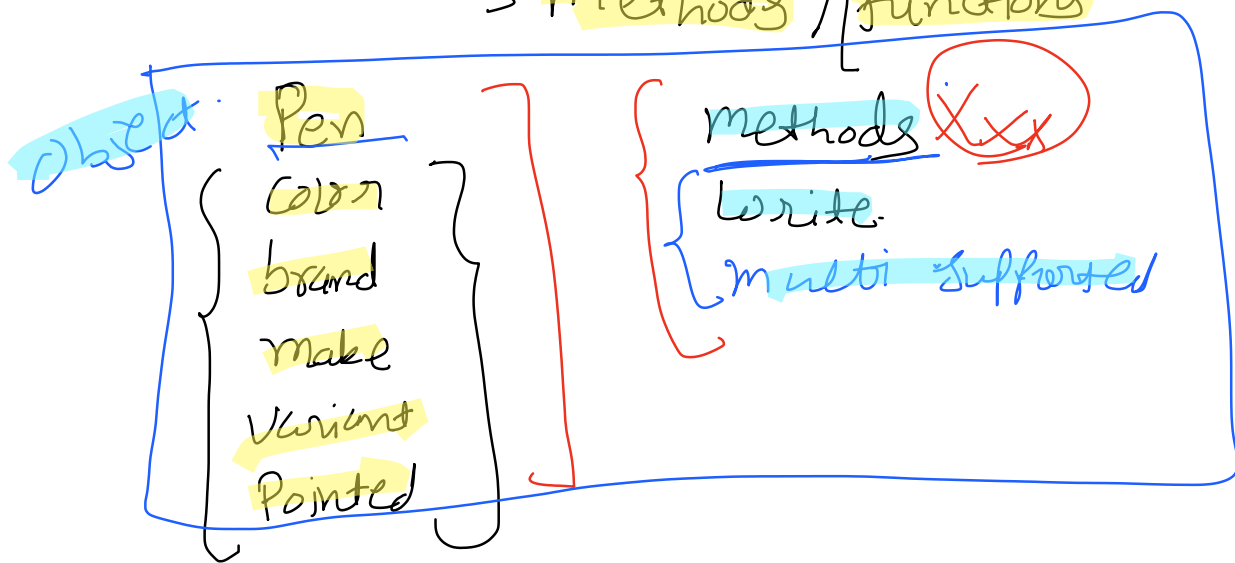 methods / functions
Object
Pen
Color
brand
make
Variant
Pointed
methods Xxx
Write
multi supported